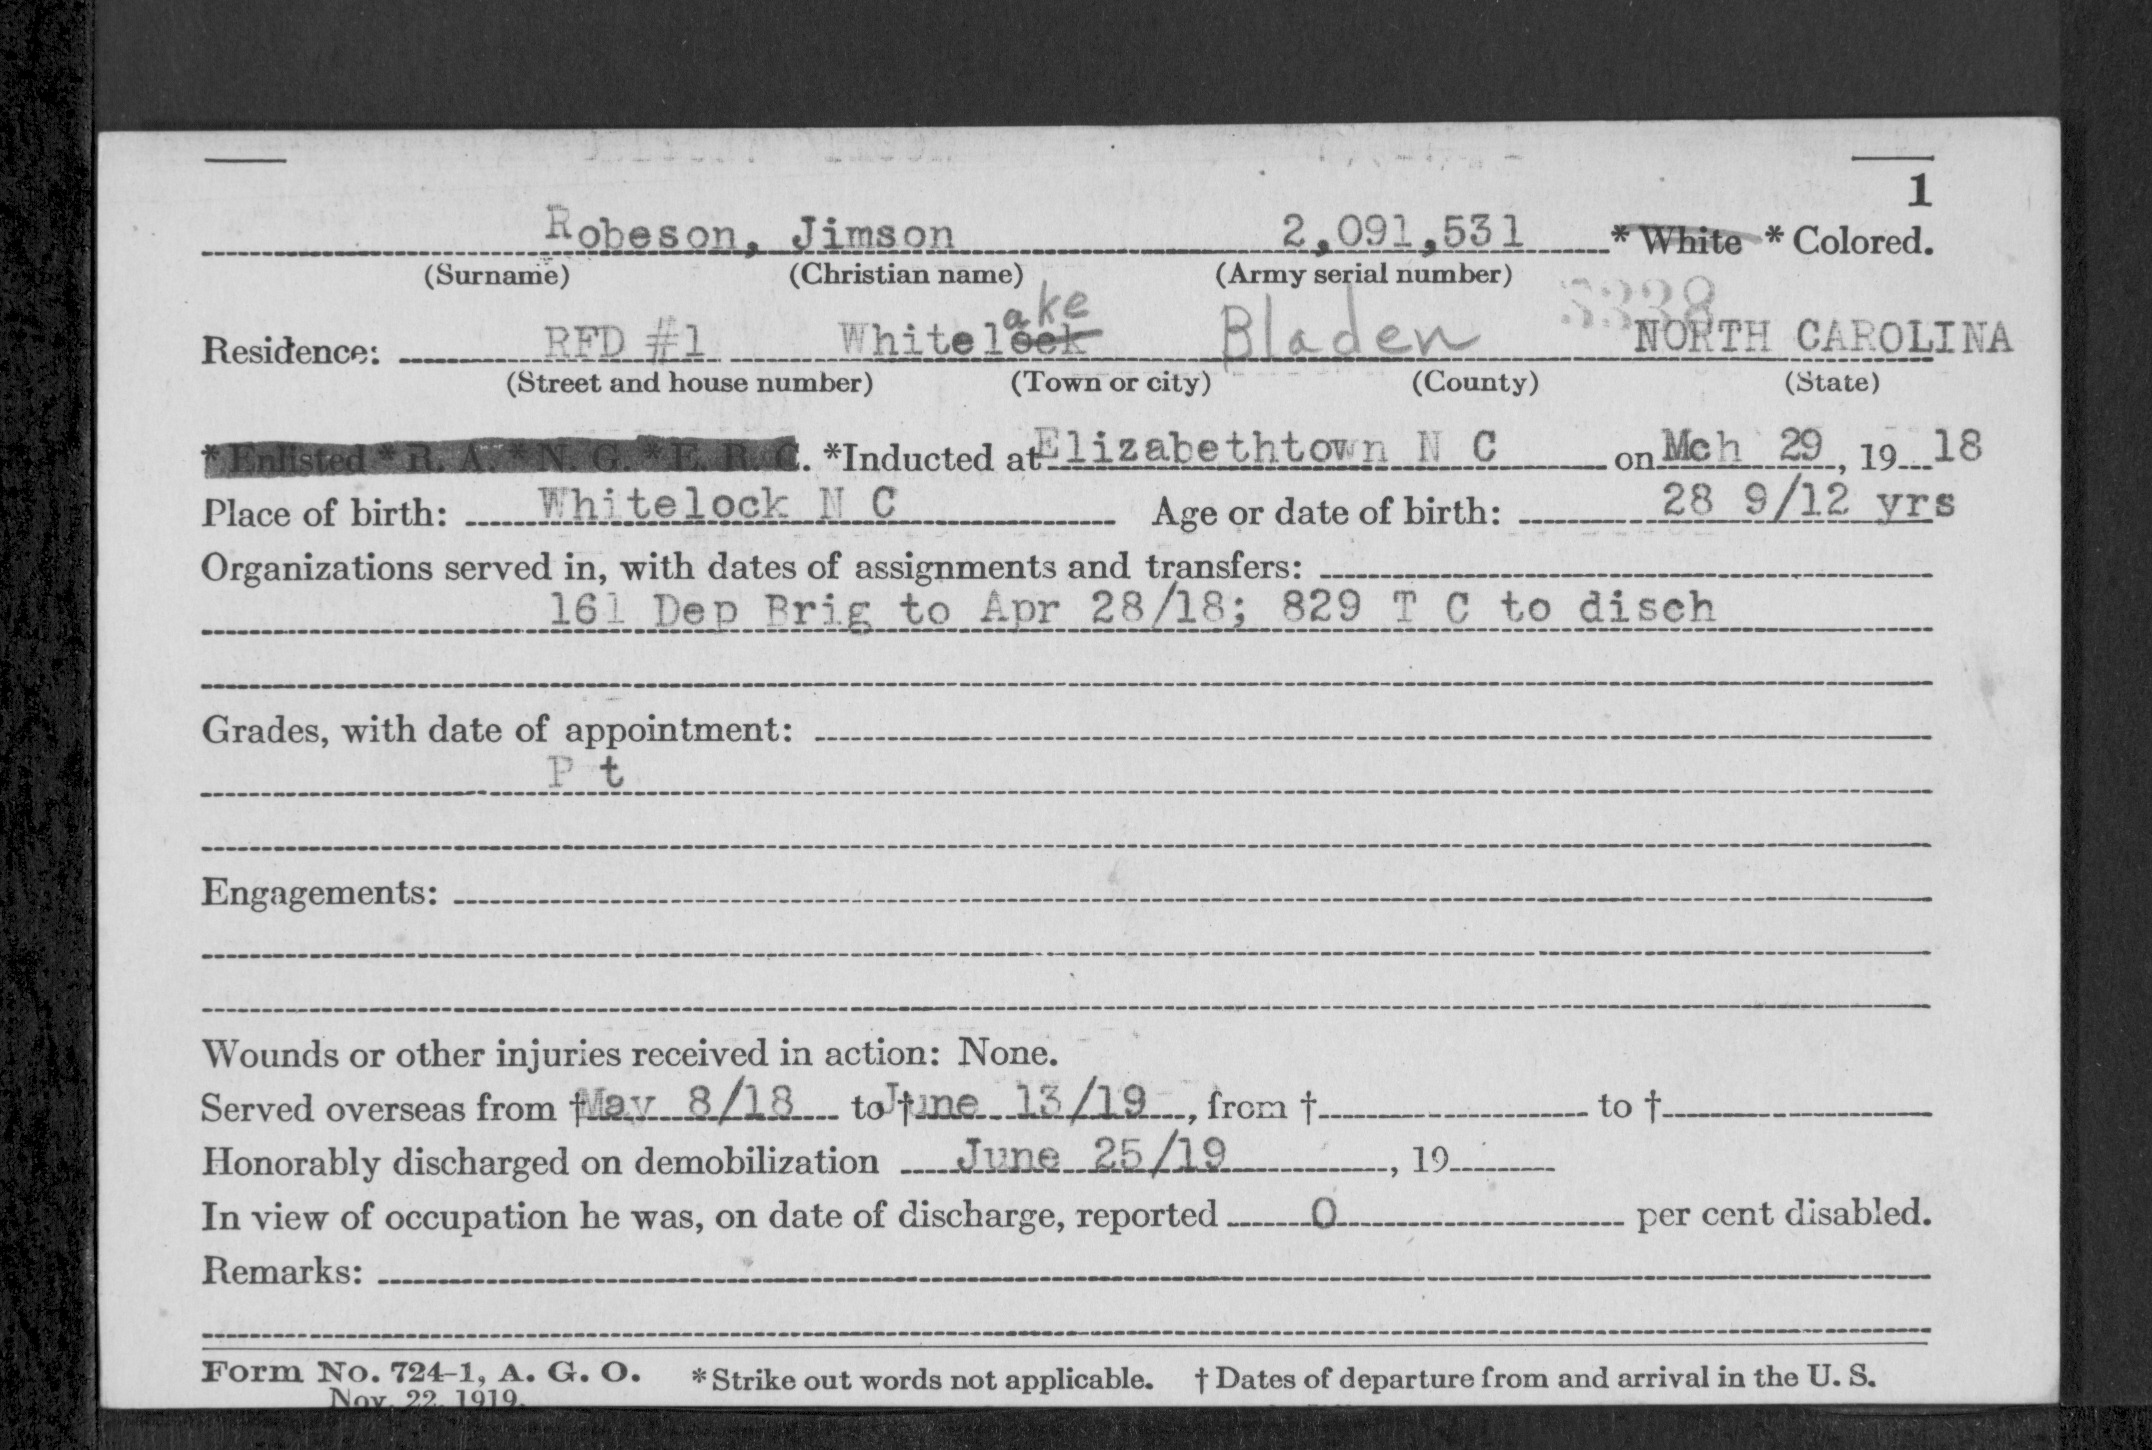 1
Robeson, Jimson 2,091,531 * White * Colored.
(Surname) (Christian name) (Army serial number)
ake
3338
Residence: RFD #1 Whitelock Bladen NORTH CAROLINA
(Street and house number) (Town or city) (County) (State)
* Enlisted * R. A. * N. G. * E. R. C. *Inducted at Elizabethtown N C on Mch 29, 19 18
Place of birth: Whitelock N C Age or date of birth: 28 9/12 yrs
Organizations served in, with dates of assignments and transfers:
161 Dep Brig to Apr 28/18; 829 T C to disch
Grades, with date of appointment:
P t
Engagements:
Wounds or other injuries received in action: None.
Served overseas from † May 8/18 to † June 13/19, from † to †
Honorably discharged on demobilization June 25/19, 19
In view of occupation he was, on date of discharge, reported 0 per cent disabled.
Remarks:
Form No. 724-1, A. G. O. * Strike out words not applicable. † Dates of departure from and arrival in the U. S.
Nov. 22, 1919.